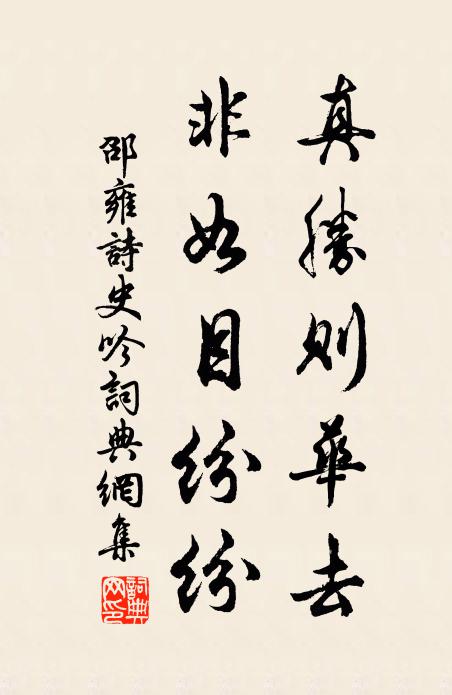 真勝則華去
非如目紛紛
邵雍詩史吟詞典網集
詞典网印